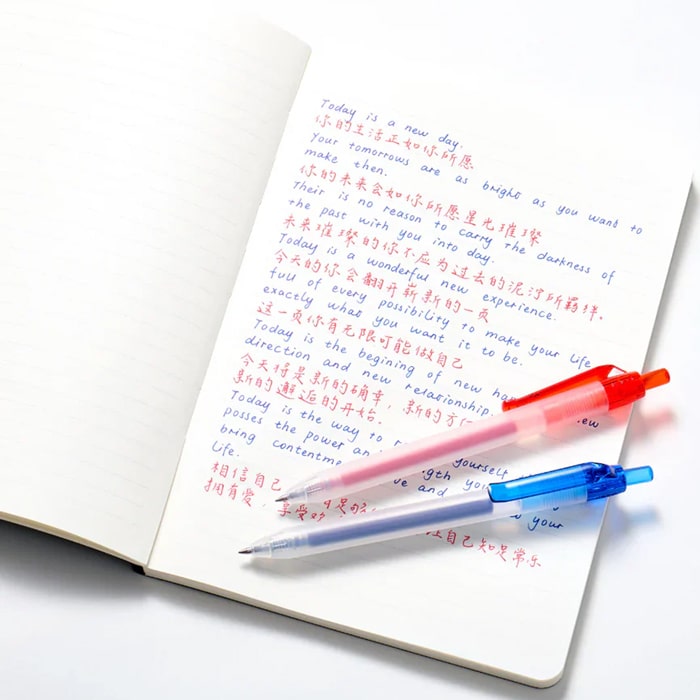 Today is a new day.
你的生活正如你所愿
Your tomorrows are as bright as you want to
make then.
你的未来会如你所愿星光璀璨
Their is no reason to carry the darkness of
the past with you into day.
未来璀璨的你不应为过去的泥泞所羁绊。
Today is a wonderful new experience.
full of every possibility to make your life
exactly what you want it to be.
今天的你会翻开崭新的一页
这一页你有无限可能做自己
Today is the begining of new
direction and new relationship
今天将是新的确幸，新的方
新的邂逅的开始.
Today is the way to yourself
posses the power an
bring contentme and your
Life.
相信自己
拥有爱，享受 自己知足常乐